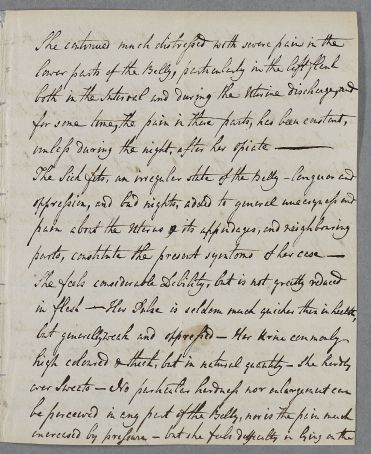 She continued much distressed with severe pain in the
lower parts of the Belly, particularly in the left flank
both in the Interval and during the Uterine discharge, and
for some time, the pain in these parts, has been constant,
unless during the night, after her opiate —
The Sick fits, an irregular state of the Belly - languor and
oppression, and bad nights, added to general uneasyness and
pain about the Uterus & its appendages, and neighbouring
parts, constitute the present symptoms of her case —
She feels considerable debility, but is not greatly reduced
in flesh — Her Pulse is seldom much quicker than in health,
but generally weak and oppressed — Her Urine commonly
high coloured & thick, but in natural quantity - She hardly
ever Sweats — No particular hardness nor enlargement can
be perceived in any part of the Belly, nor is the pain much
increased by pressure — but she feels difficulty in lying on the